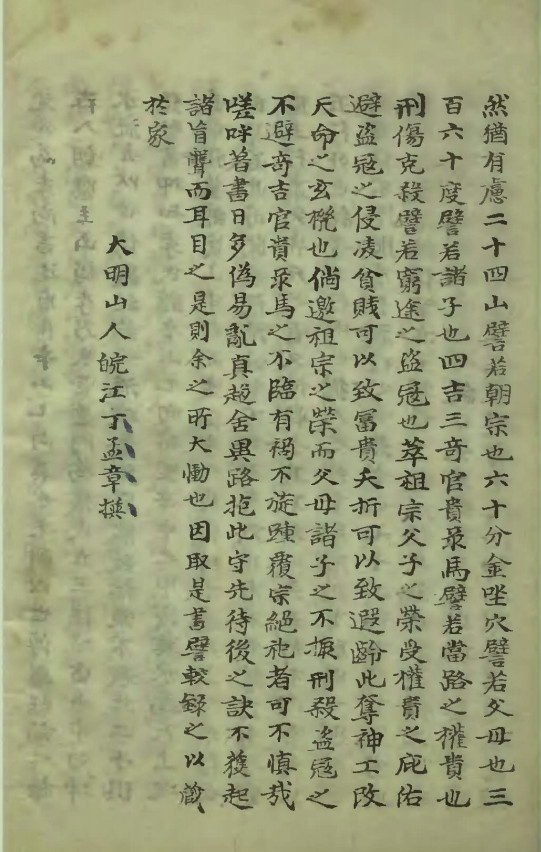 然猶有慮二十四山譬若朝宗也六十分金坐穴譬若父母也三
百六十度譬若諸子也四吉三奇官貴祿馬譬若當路之權貴也
刑傷克殺譬若窮途之盜冦也萃祖宗父子之榮受權貴之庇佑
避盜冦之侵凌貧賤可以致冨貴夭折可以致遐齡此奪神工改
天命之玄機也倘邀祖宗之榮而父母諸子之不振刑殺盜冦之
不避奇吉官貴祿馬之不臨有禍不旋踵覆宗絕祀者可不慎哉
嗟呼著書日多偽易亂真趨舍異路抱此守先待後之訣不獲起
諸盲聾而耳目之是則余之所大慟也因取是書譬較錄之以藏
於家
大明山人皖江丁孟章撰